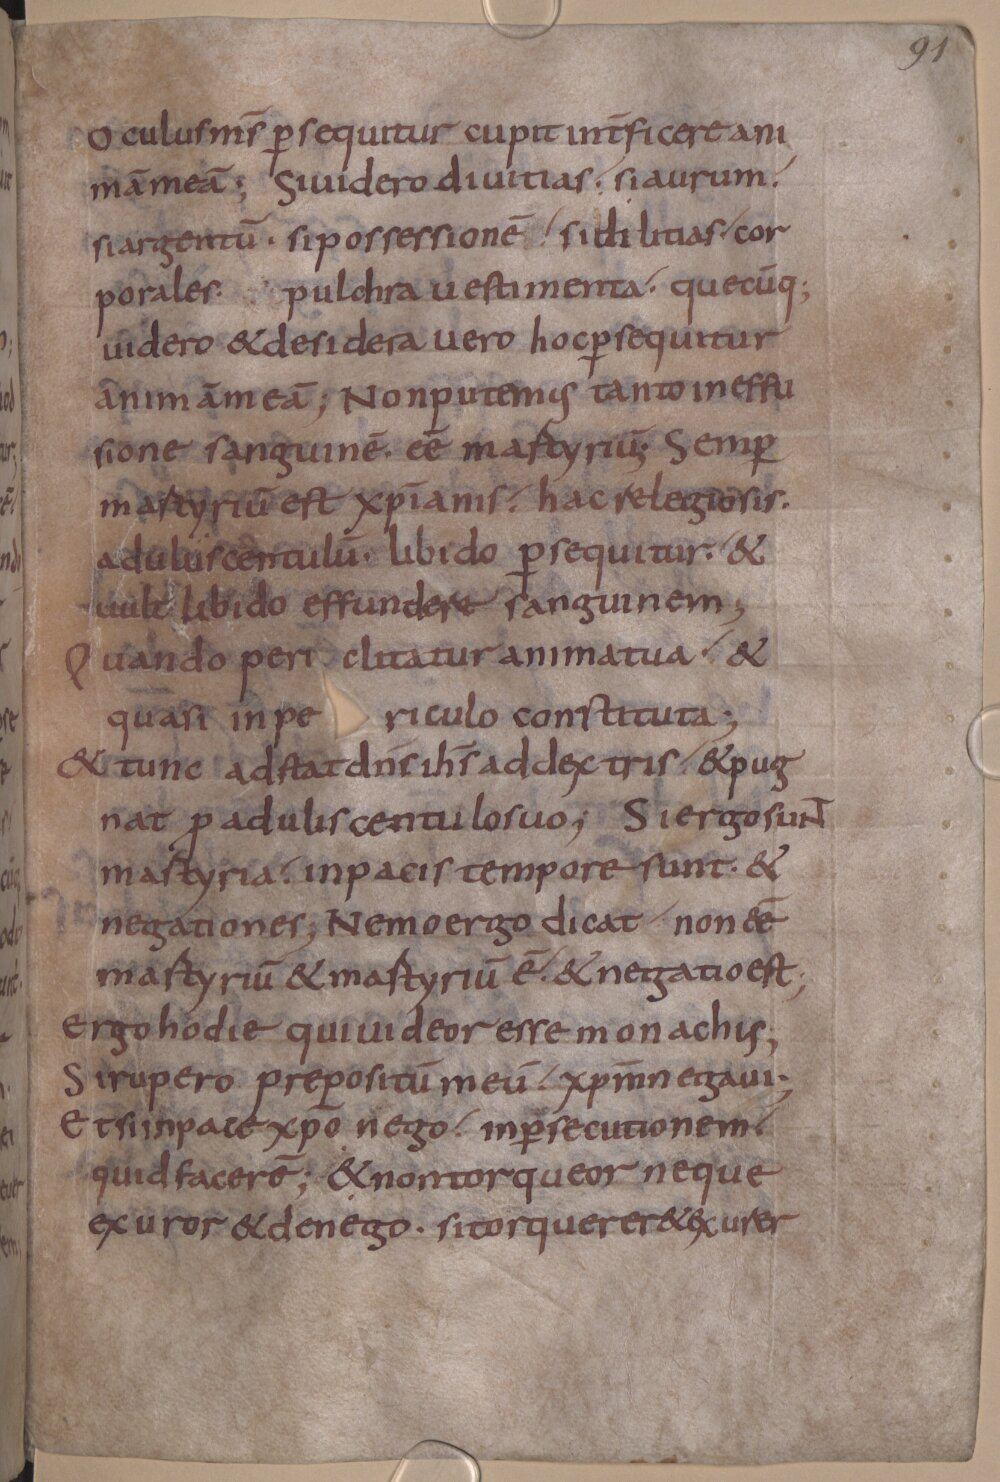 91
Oculus m̄s ꝑsequitur cupit int̄ficere ani
mā meā; Si uidero diuitias. si aurum.
si argentū. si possessionē. si dilitias cor
porales. pulchra uestimenta. quecūq;
uidero & desidera uero hoc ꝑsequitur
animā meā; Non putemus tanto in effu
sione sanguinē. eē martyriū; Semꝑ
martyriū est xp̄ianis. hac relegiosis.
aduluscentulū. libido ꝑsequitur. &
uult libido effundere sanguinem;
Quando peri clitatur anima tua. &
quasi in pe riculo constituta;
& tunc adstat dn̄s ih̄s ad dextris. & pug
nat ꝓ aduliscentulo suo; Si ergo sunt
martyria. in pacis tempore sunt. &
negationes; Nemo ergo dicat non eē
martyriū & martyriū ē. & negatio est;
Ergo hodie qui uideor esse monachus;
Si rupero preꝑositū meū. xp̄m negaui;
Et si in pace xp̄o nego. in ꝑsecutionem.
quid facerē; & non torqueor neque
exuror & denego. si torquerer & exurer